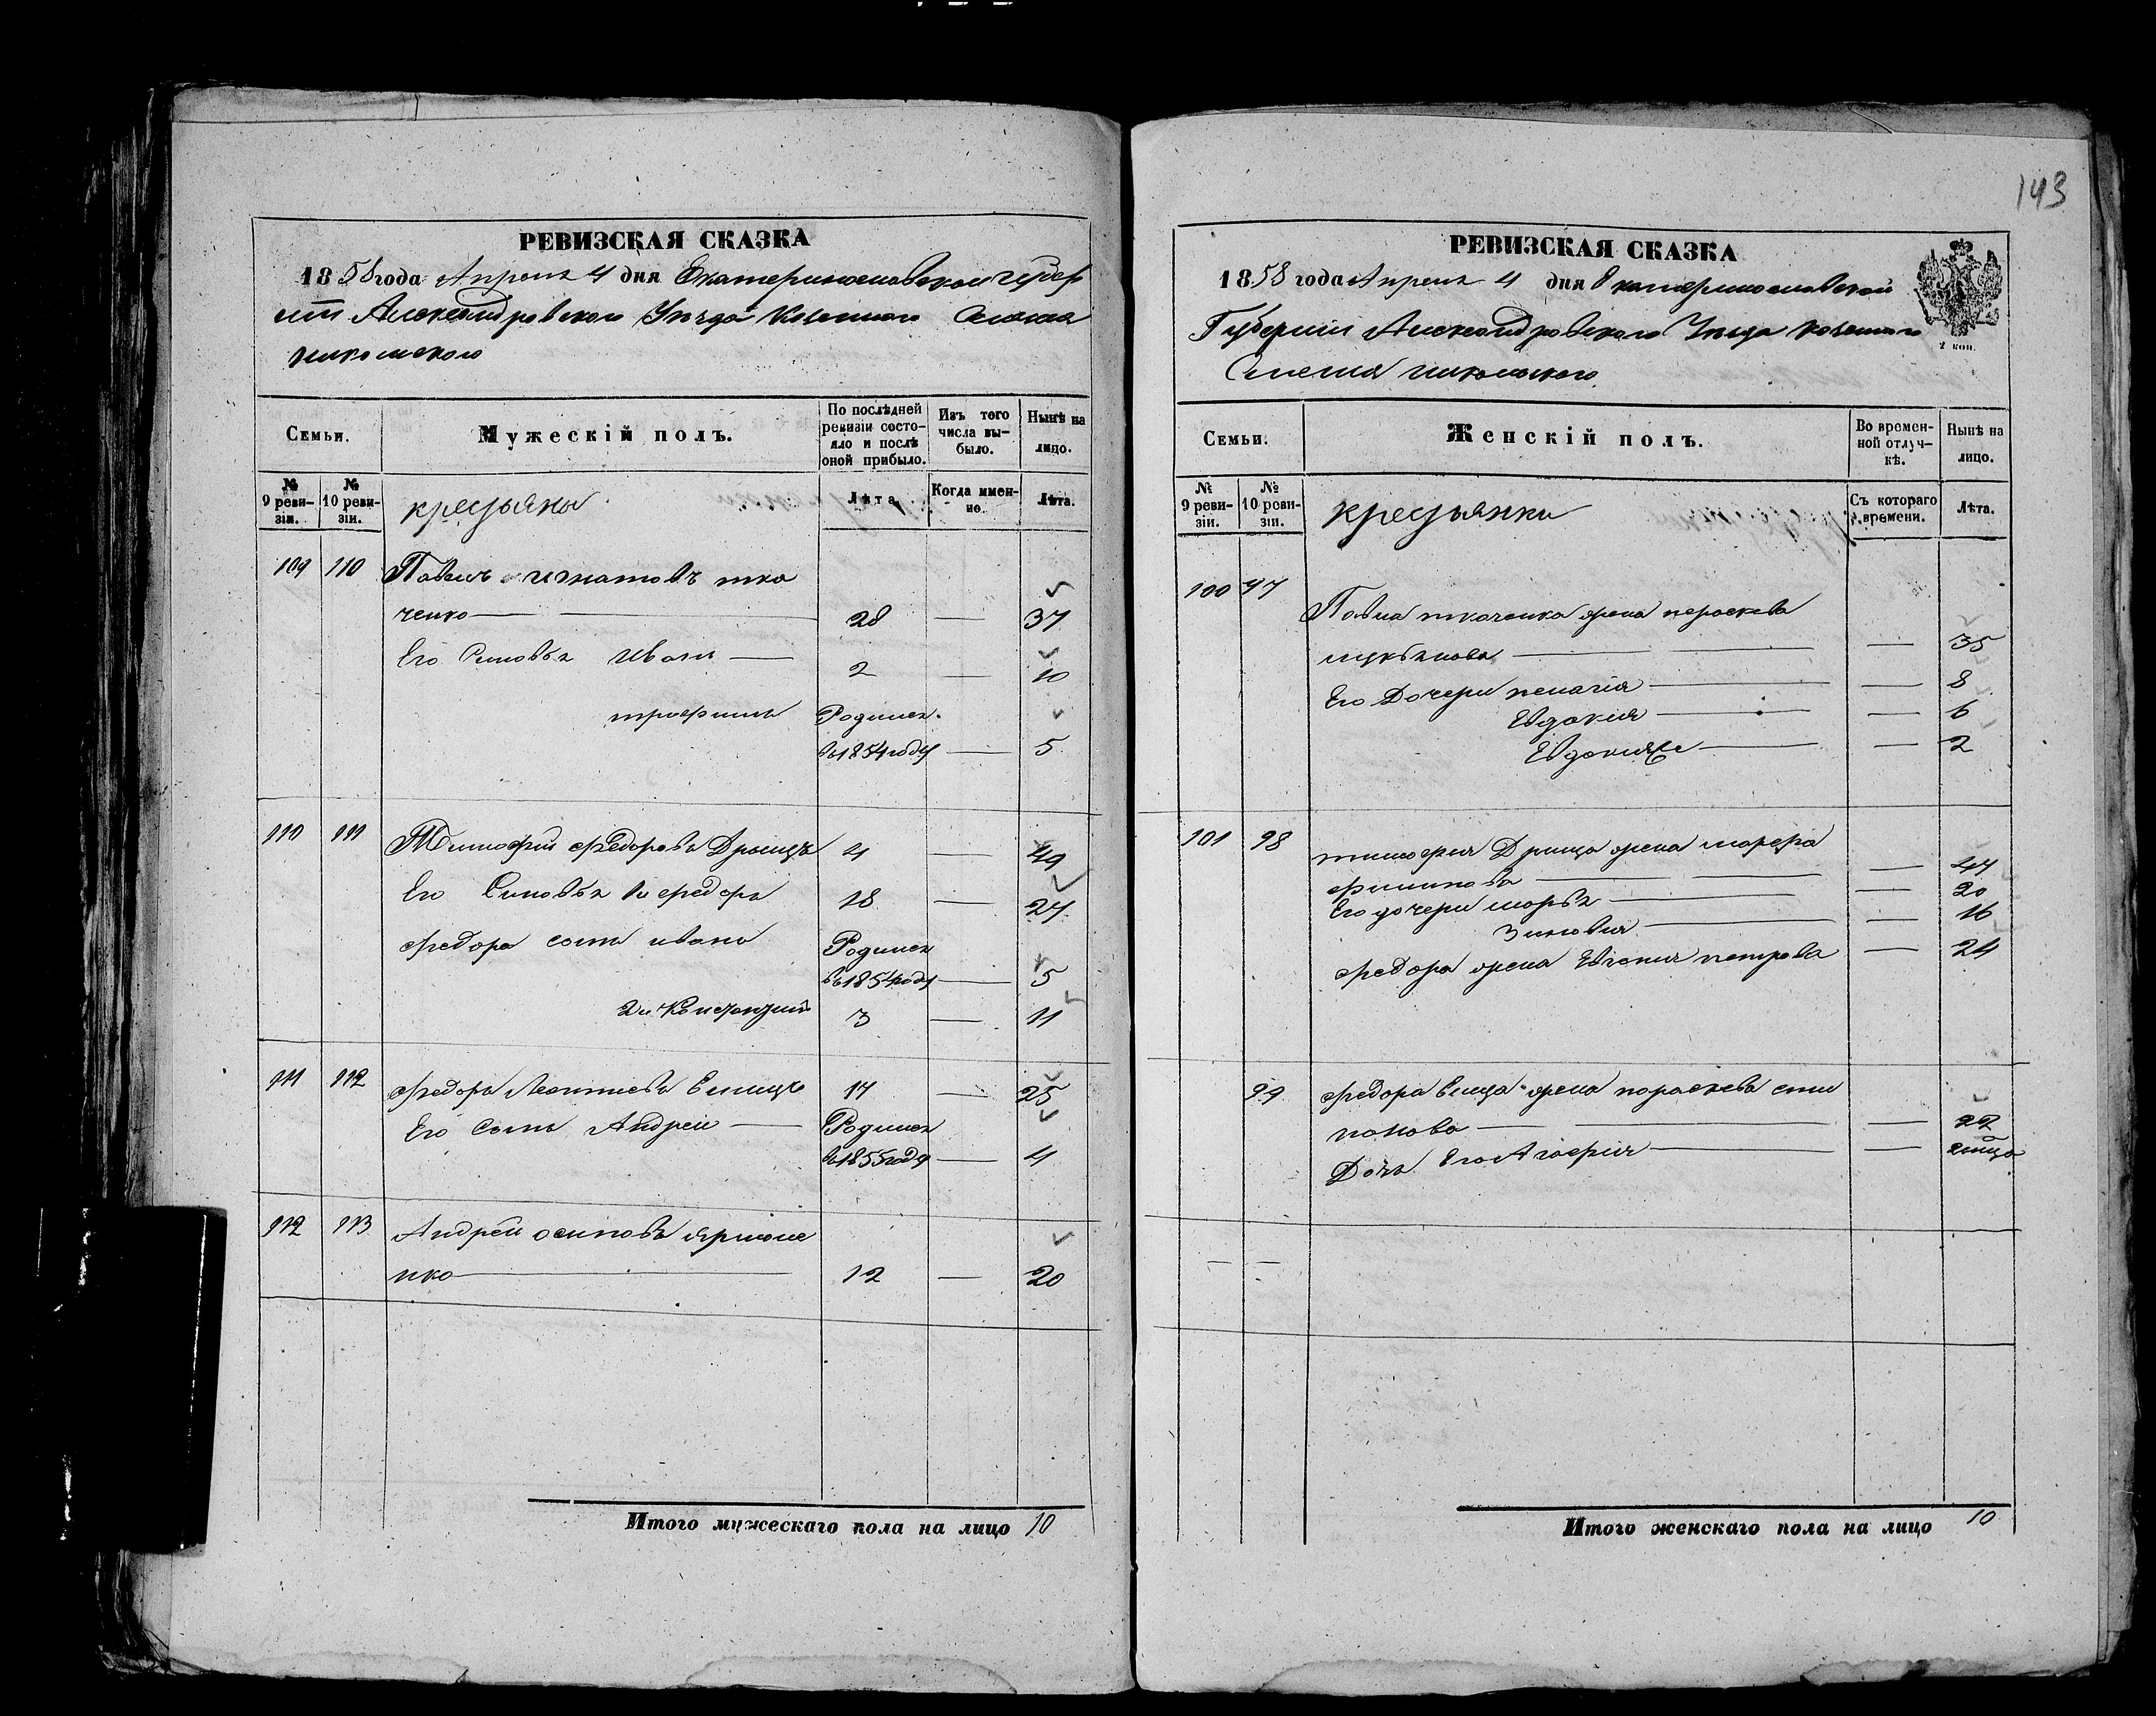 143
РЕВИЗСКАЯ СКАЗКА
1858 года Апреля 4 дня Екатеринославской губер
нии Александровского Уезда Казенного Селения
Никольского
Семьи.
Мужескій полъ.
По послѣдней ревизіи состояло и послѣ оной прибыло.
Изъ того числа выбыло.
Нынѣ на лицо.
№ 9 ревизіи.
№ 10 ревизіи.
крестьяны
Лѣта.
Когда именно.
Лѣта.
109 110 Павелъ игнатовъ тка
ченко — 28 — 37
Его Сыновья Иванъ — 2 — 10
трофимъ Родился
въ 1854 году — 5
110 111 Тимофей Федоровъ Дрыщъ 41 — 49
Его Сыновья 1й федоръ 18 — 27
федора сынъ иванъ Родился
въ 1854 году — 5
2й Констанций 3 — 11
111 112 федоръ Леонтиевъ Елищъ 17 — 25
Его Сынъ Андрей — Родился
въ 1855 году — 4
112 113 Андрей осиповъ ярмоле
нко — 12 — 20
Итого мужескаго пола на лицо 10
РЕВИЗСКАЯ СКАЗКА
1858 года Апреля 4 дня Екатеринославской
Губернии Александровского Уезда Казенного
Селения никольского
2 коп.
Семьи.
Женскій полъ.
Во временной отлучкѣ.
Нынѣ на лицо.
№ 9 ревизіи.
№ 10 ревизіи.
крестьянки
Съ котораго времени.
Лѣта.
100 97
Павла ткаченка жена пераскева
лукьянова — — 35
Его Дочери пелагія — — 8
Евдокія — — 6
Евдокия — — 2
101 98 тимофея Дрища жена марфа
филипова — — 47
Его дочери марья — — 20
Зиновия — — 16
федора жена Евгения петрова — 24
99 федора Елища жена параскева сти
панова — — 22
Дочь Его Агафия — —
Итого женскаго пола на лицо 10